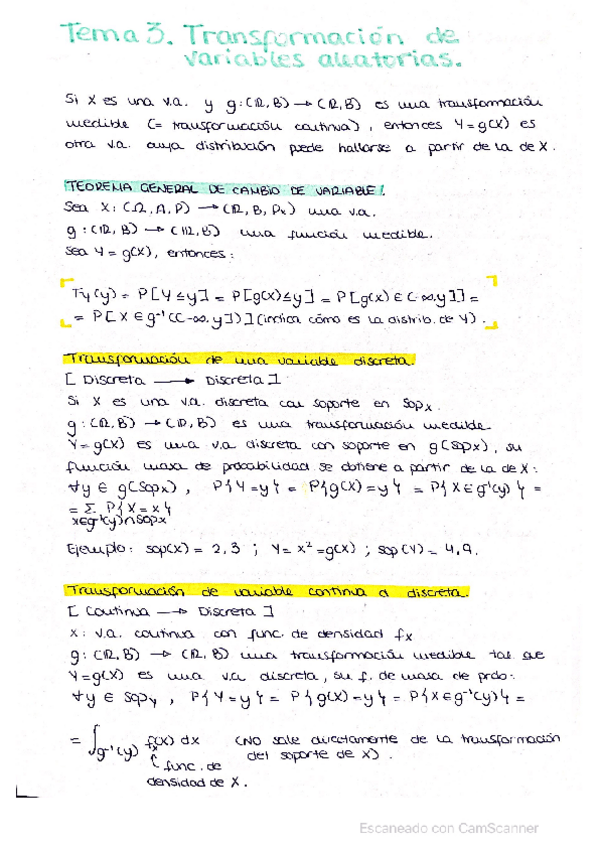 Tema 3. Transformación de
variables aleatorias.
Si X es una v.a. y g:(ℝ,B) → (ℝ,B) es una transformación
medible (= transformación continua), entonces Y=g(X) es
otra v.a. cuya distribución puede hallarse a partir de la de X.
TEOREMA GENERAL DE CAMBIO DE VARIABLE!
Sea X: (Ω, A, P) → (ℝ, B, Px) una v.a.
g: (ℝ, B) → (ℝ, B) una función medible.
Sea Y = g(X), entonces:
Fy(y) = P[Y ≤ y] = P[g(X) ≤ y] = P[g(X) ∈ (-∞,y]] =
= P[X ∈ g⁻¹((-∞,y])] (indica cómo es la distrib. de Y).
Transformación de una variable discreta.
[ Discreta → Discreta ]
Si X es una v.a. discreta con soporte en Sopx.
g: (ℝ, B) → (ℝ, B) es una transformación medible.
Y=g(X) es una v.a discreta con soporte en g(Sopx), su
función masa de probabilidad se obtiene a partir de la de X:
∀y ∈ g(Sopx), P{Y=y} = P{g(X)=y} = P{X∈g⁻¹(y)} =
= Σ P{X=x}
x∈g⁻¹(y)∩Sopx
Ejemplo: sop(X) = 2,3 ; Y = x² = g(X) ; sop(Y) = 4,9.
Transformación de variable continua a discreta.
[ Continua → Discreta ]
X: v.a. continua con func. de densidad fx
g: (ℝ, B) → (ℝ, B) una transformación medible tal que
Y=g(X) es una v.a discreta, su f. de masa de prob:
∀y ∈ Sopy, P{Y=y} = P{g(X)=y} = P{X∈g⁻¹(y)} =
= ∫g⁻¹(y) fx(x) dx (NO sale directamente de la transformación
del soporte de X).
func. de
densidad de X.
Escaneado con CamScanner